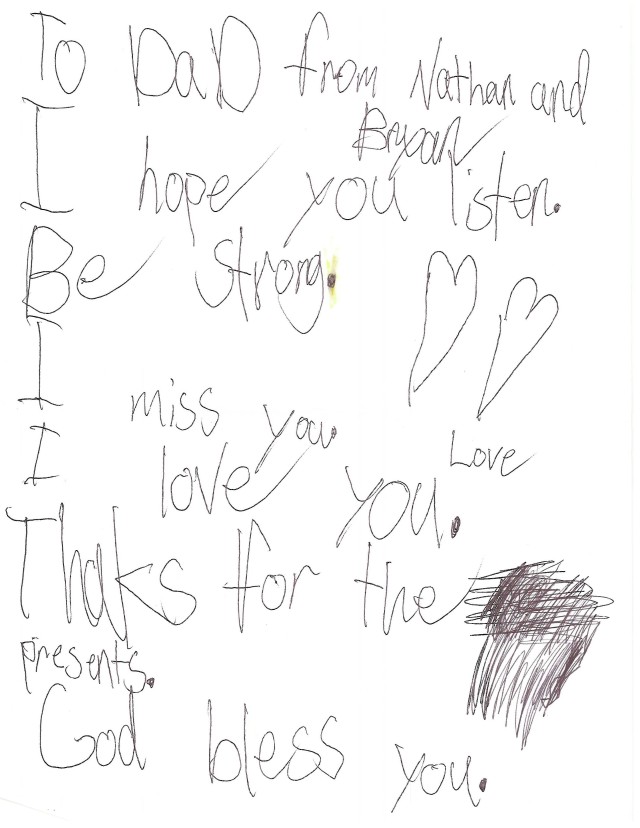 To DaD from Nathan and
Bryan
I hope you listen.
Be strong.
I miss you.
Love
I love you.
Thaks for the
presents.
God bless you.